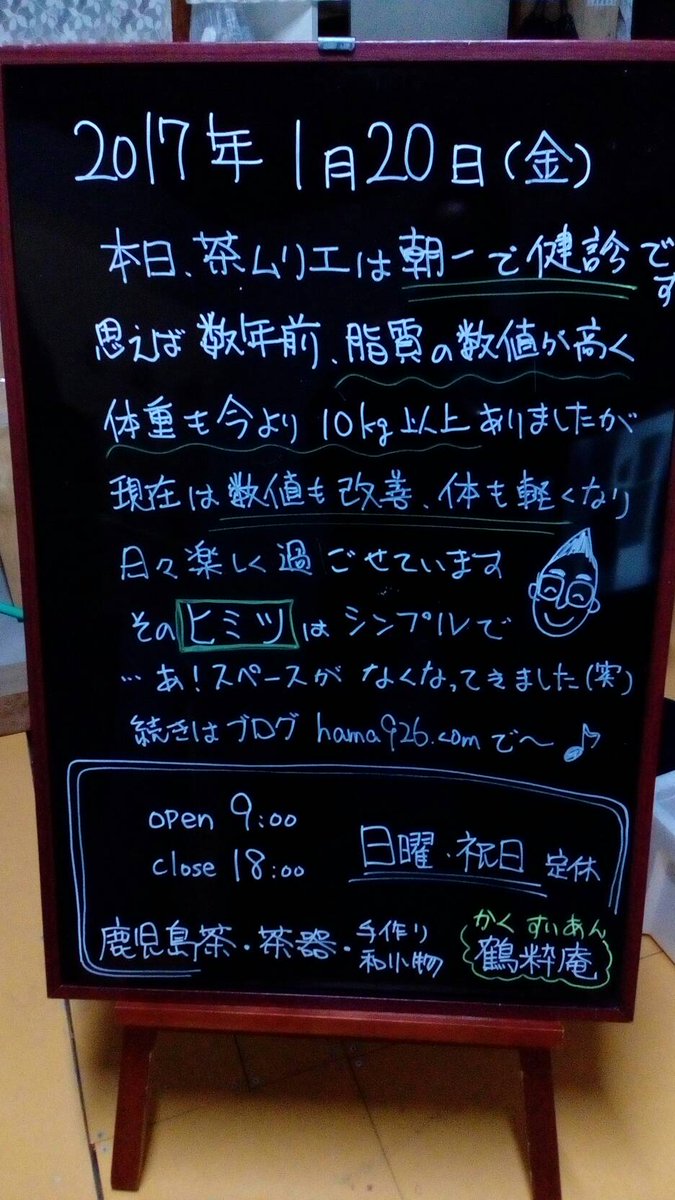 2017年1月20日(金)
本日、茶ムリエは朝一で健診です
思えば数年前、脂質の数値が高く
体重も今より10kg以上ありましたが
現在は数値も改善、体も軽くなり
日々楽しく過ごせています
そのヒミツはシンプルで
…あ!スペースがなくなってきました(実)
続きはブログ hama926.comで〜♪
open 9:00
close 18:00
日曜・祝日 定休
鹿児島茶・茶器・手作り和小物
かくすいあん
鶴粋庵